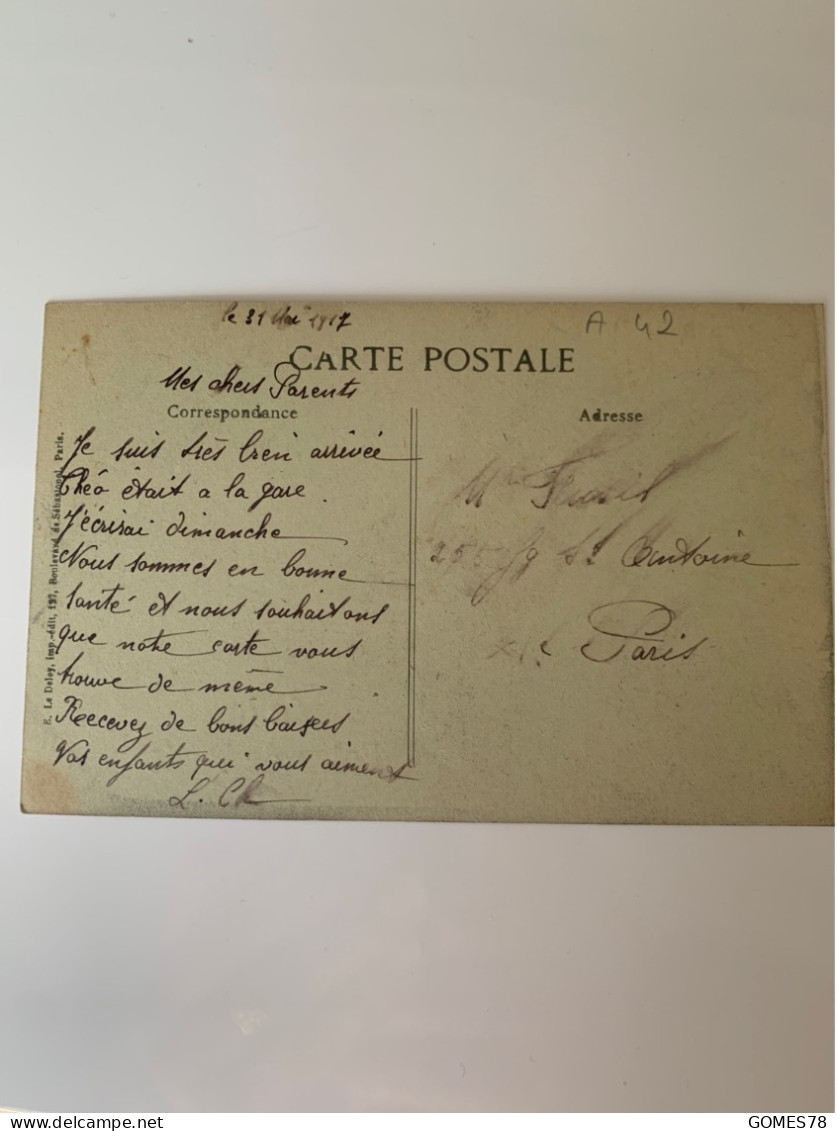 le 31 Mai 1917
A 42
CARTE POSTALE
Mes chers Parents
Correspondance
Je suis très bien arrivée
Théo était a la gare.
J'écrirai dimanche
Nous sommes en bonne
santé et nous souhaitons
que notre carte vous
trouve de même
Recevez de bons baisers
Vos enfants qui vous aiment
L. Ch
E. Le Deley, imp.-édit, 127, Boulevard de Sébastopol, Paris.
Adresse
255 fg St Antoine
Paris
GOMES78